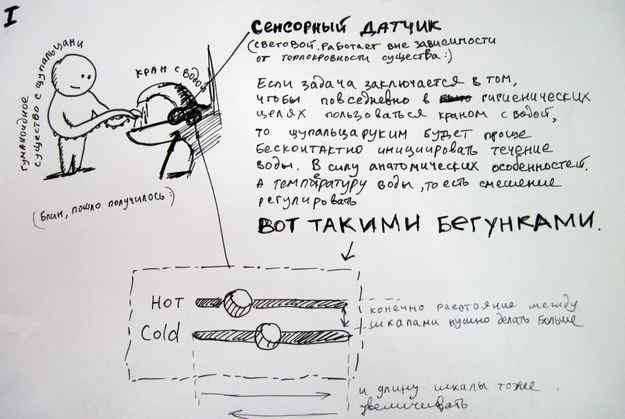 I
Сенсорный датчик
(световой. Работает вне зависимости
от теплокровности существа :)
кран с водой
гуманоидное
существо с щупальцами
Если задача заключается в том,
чтобы повседневно в гигиенических
целях пользоваться краном с водой,
то щупальцаруким будет проще
бесконтактно инициировать течение
воды. В силу анатомических особенностей.
А температуру воды, то есть смешение
регулировать
(Блин, пошло получилось :)
ВОТ ТАКИМИ БЕГУНКАМИ.
HOT
Cold
конечно расстояние между
шкалами нужно делать больше
и длину шкалы тоже
увеличивать